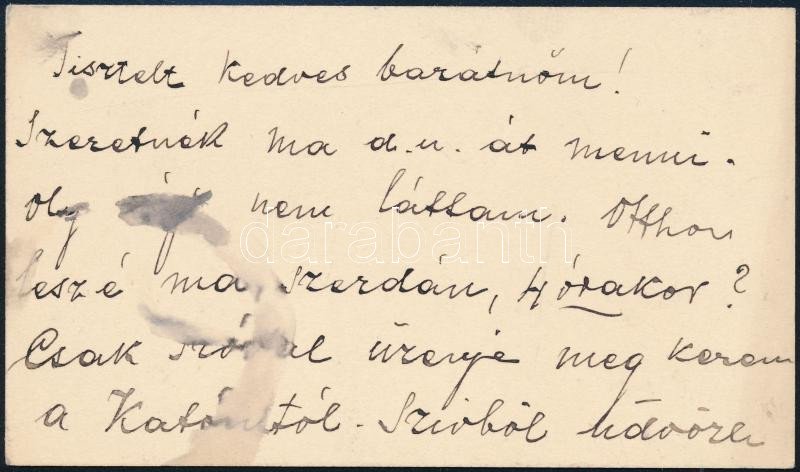 Tisztelt kedves barátnőm!
Szeretnék ma d.u. át menni.
Oly rég nem láttam. Otthon
lesz é ma, szerdán, 4 órakor?
Csak szóval üzenje meg kérem
a Katónktól. Szivből üdvözli
darabanth